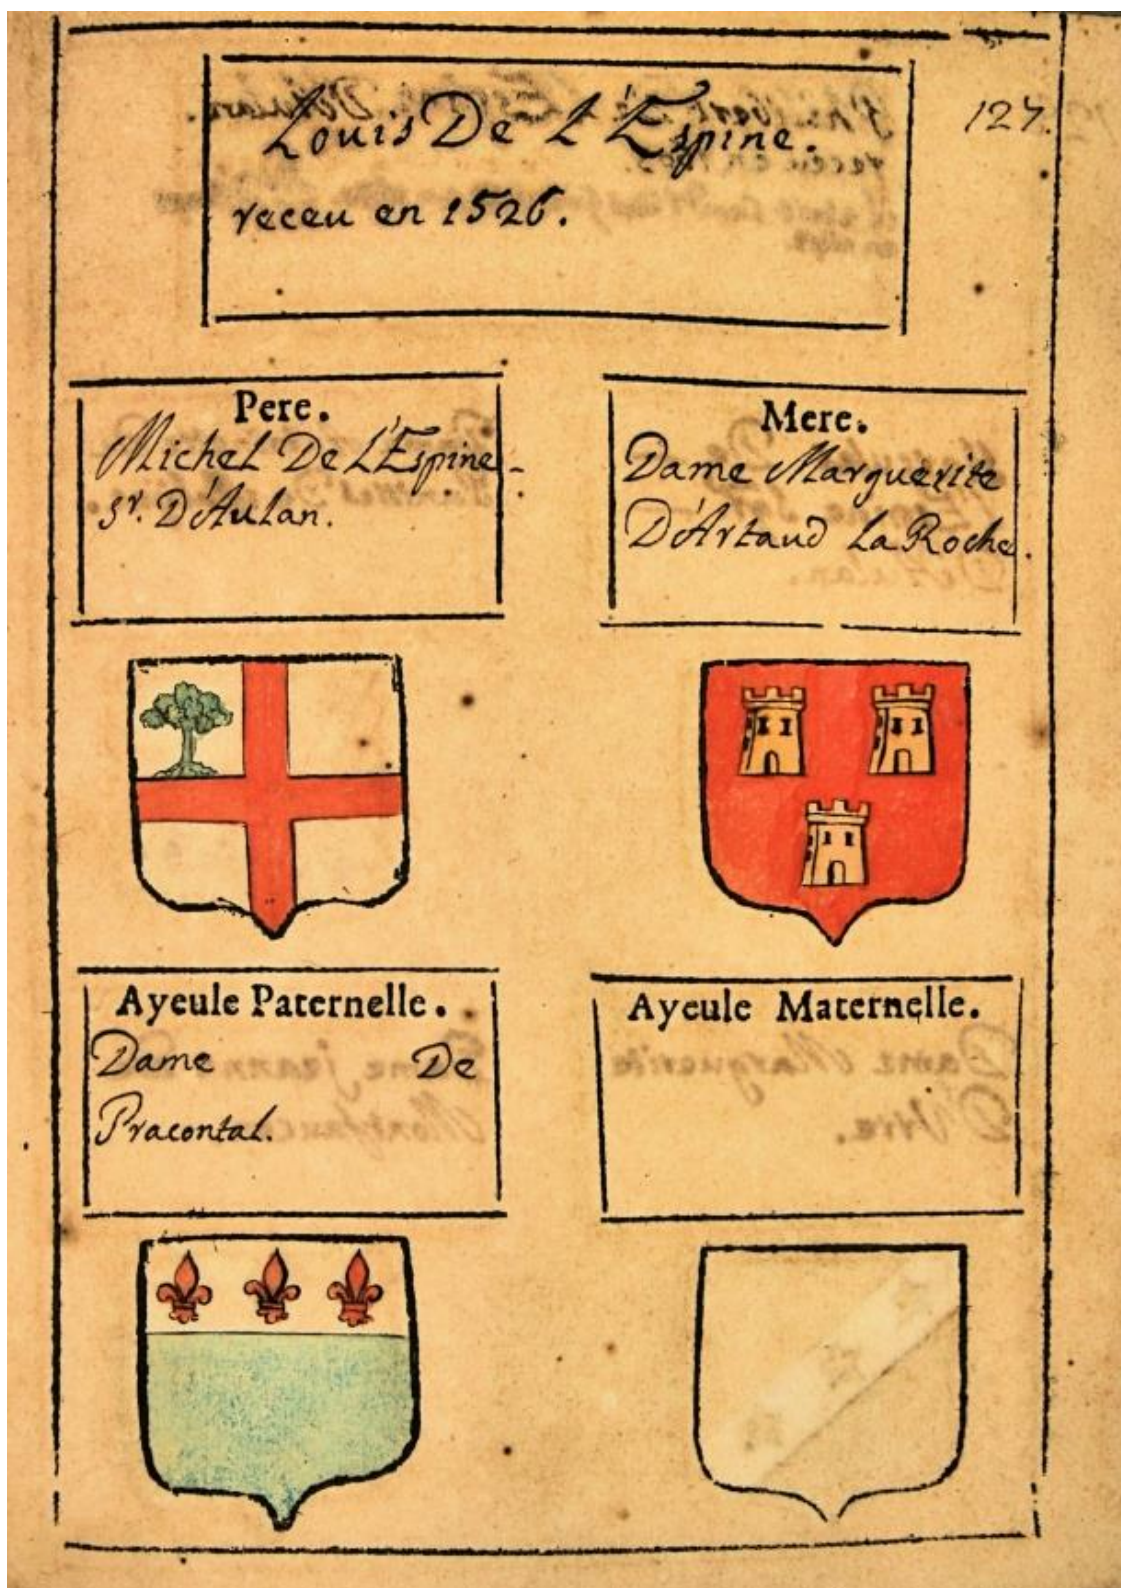 Louis De L'Espine.
127.
receu en 1526.
Pere.
Michel De L'Espine -
sr. D'Aulan.
Mere.
Dame Marguerite
D'Artaud La Roche.
Ayeule Paternelle.
Dame De
Pracontal.
Ayeule Maternelle.